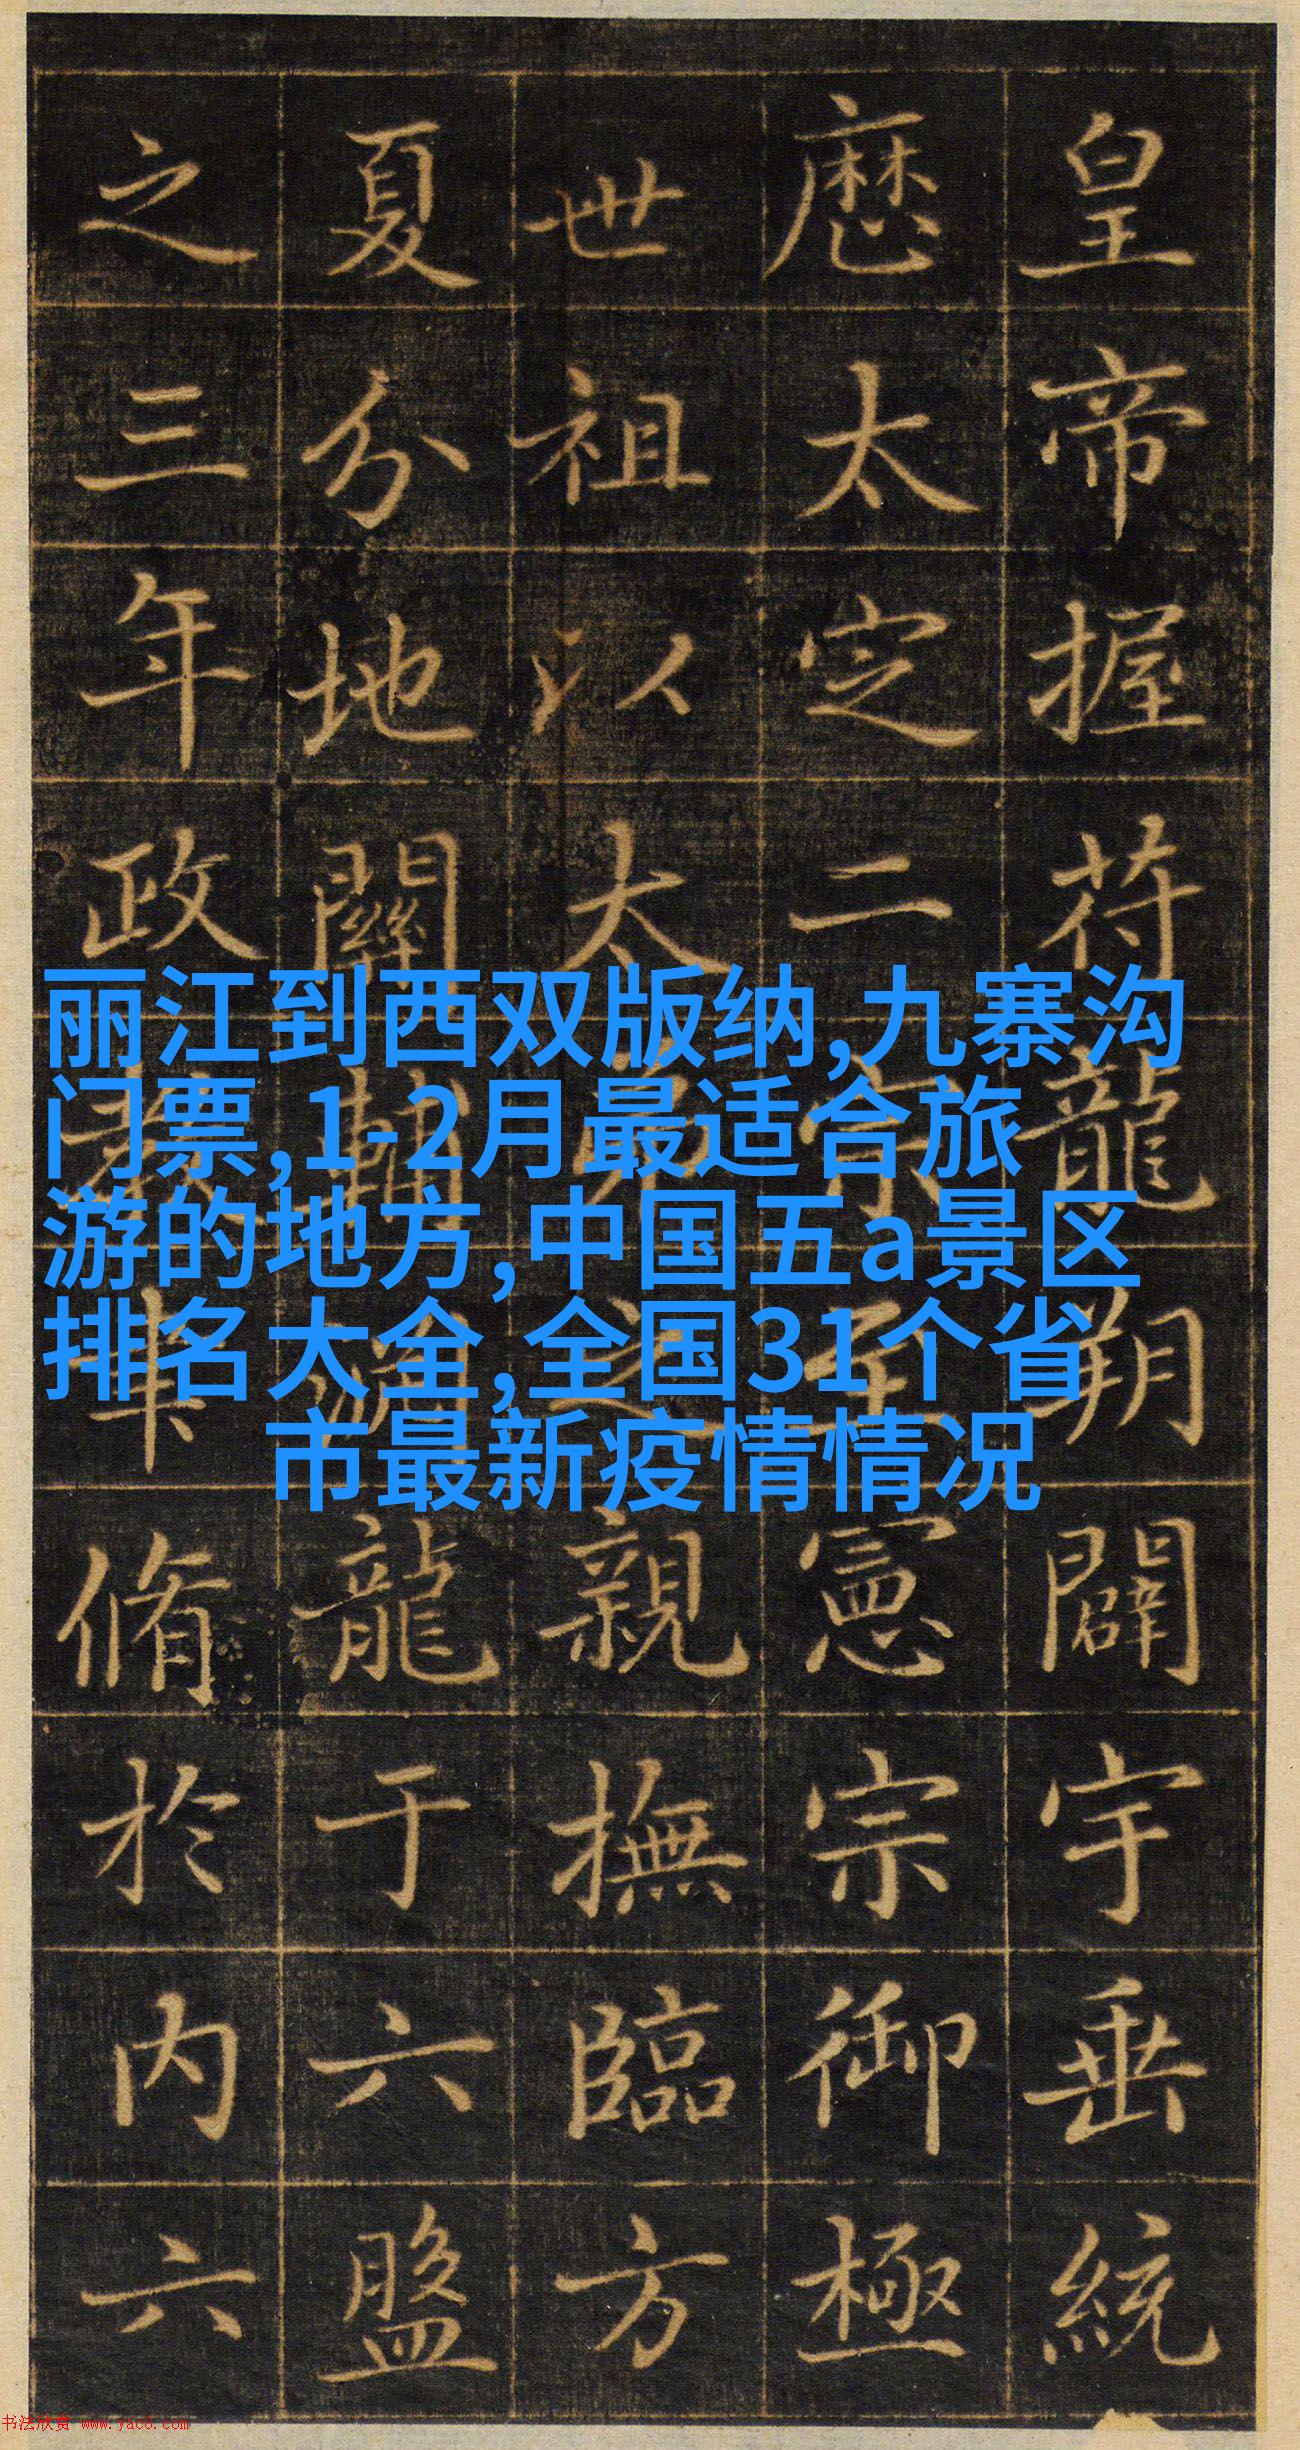 皇帝握符龍朔闢宇垂統
歷太定二宗至憲宗御極
世祖以太弟之親撫臨方
夏分地關輔龍于六盤
之三年政教脩於內六
丽江到西双版纳,九寨沟
门票,1-2月最适合旅
游的地方,中国五a景区
排名大全,全国31个省
市最新疫情情况
书法欣赏 www.yac8.com